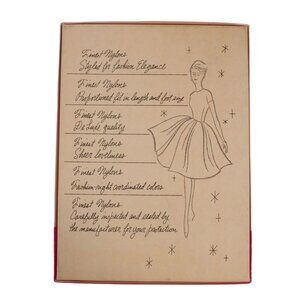 Finest Nylons
Styled for Fashion Elegance
Finest Nylons
Proportioned fit in length and foot size
Finest Nylons
DeLuxe quality
Finest Nylons
Sheer loveliness
Finest Nylons
Fashion-right coordinated colors
Finest Nylons
Carefully inspected and sealed by
the manufacturer for your protection